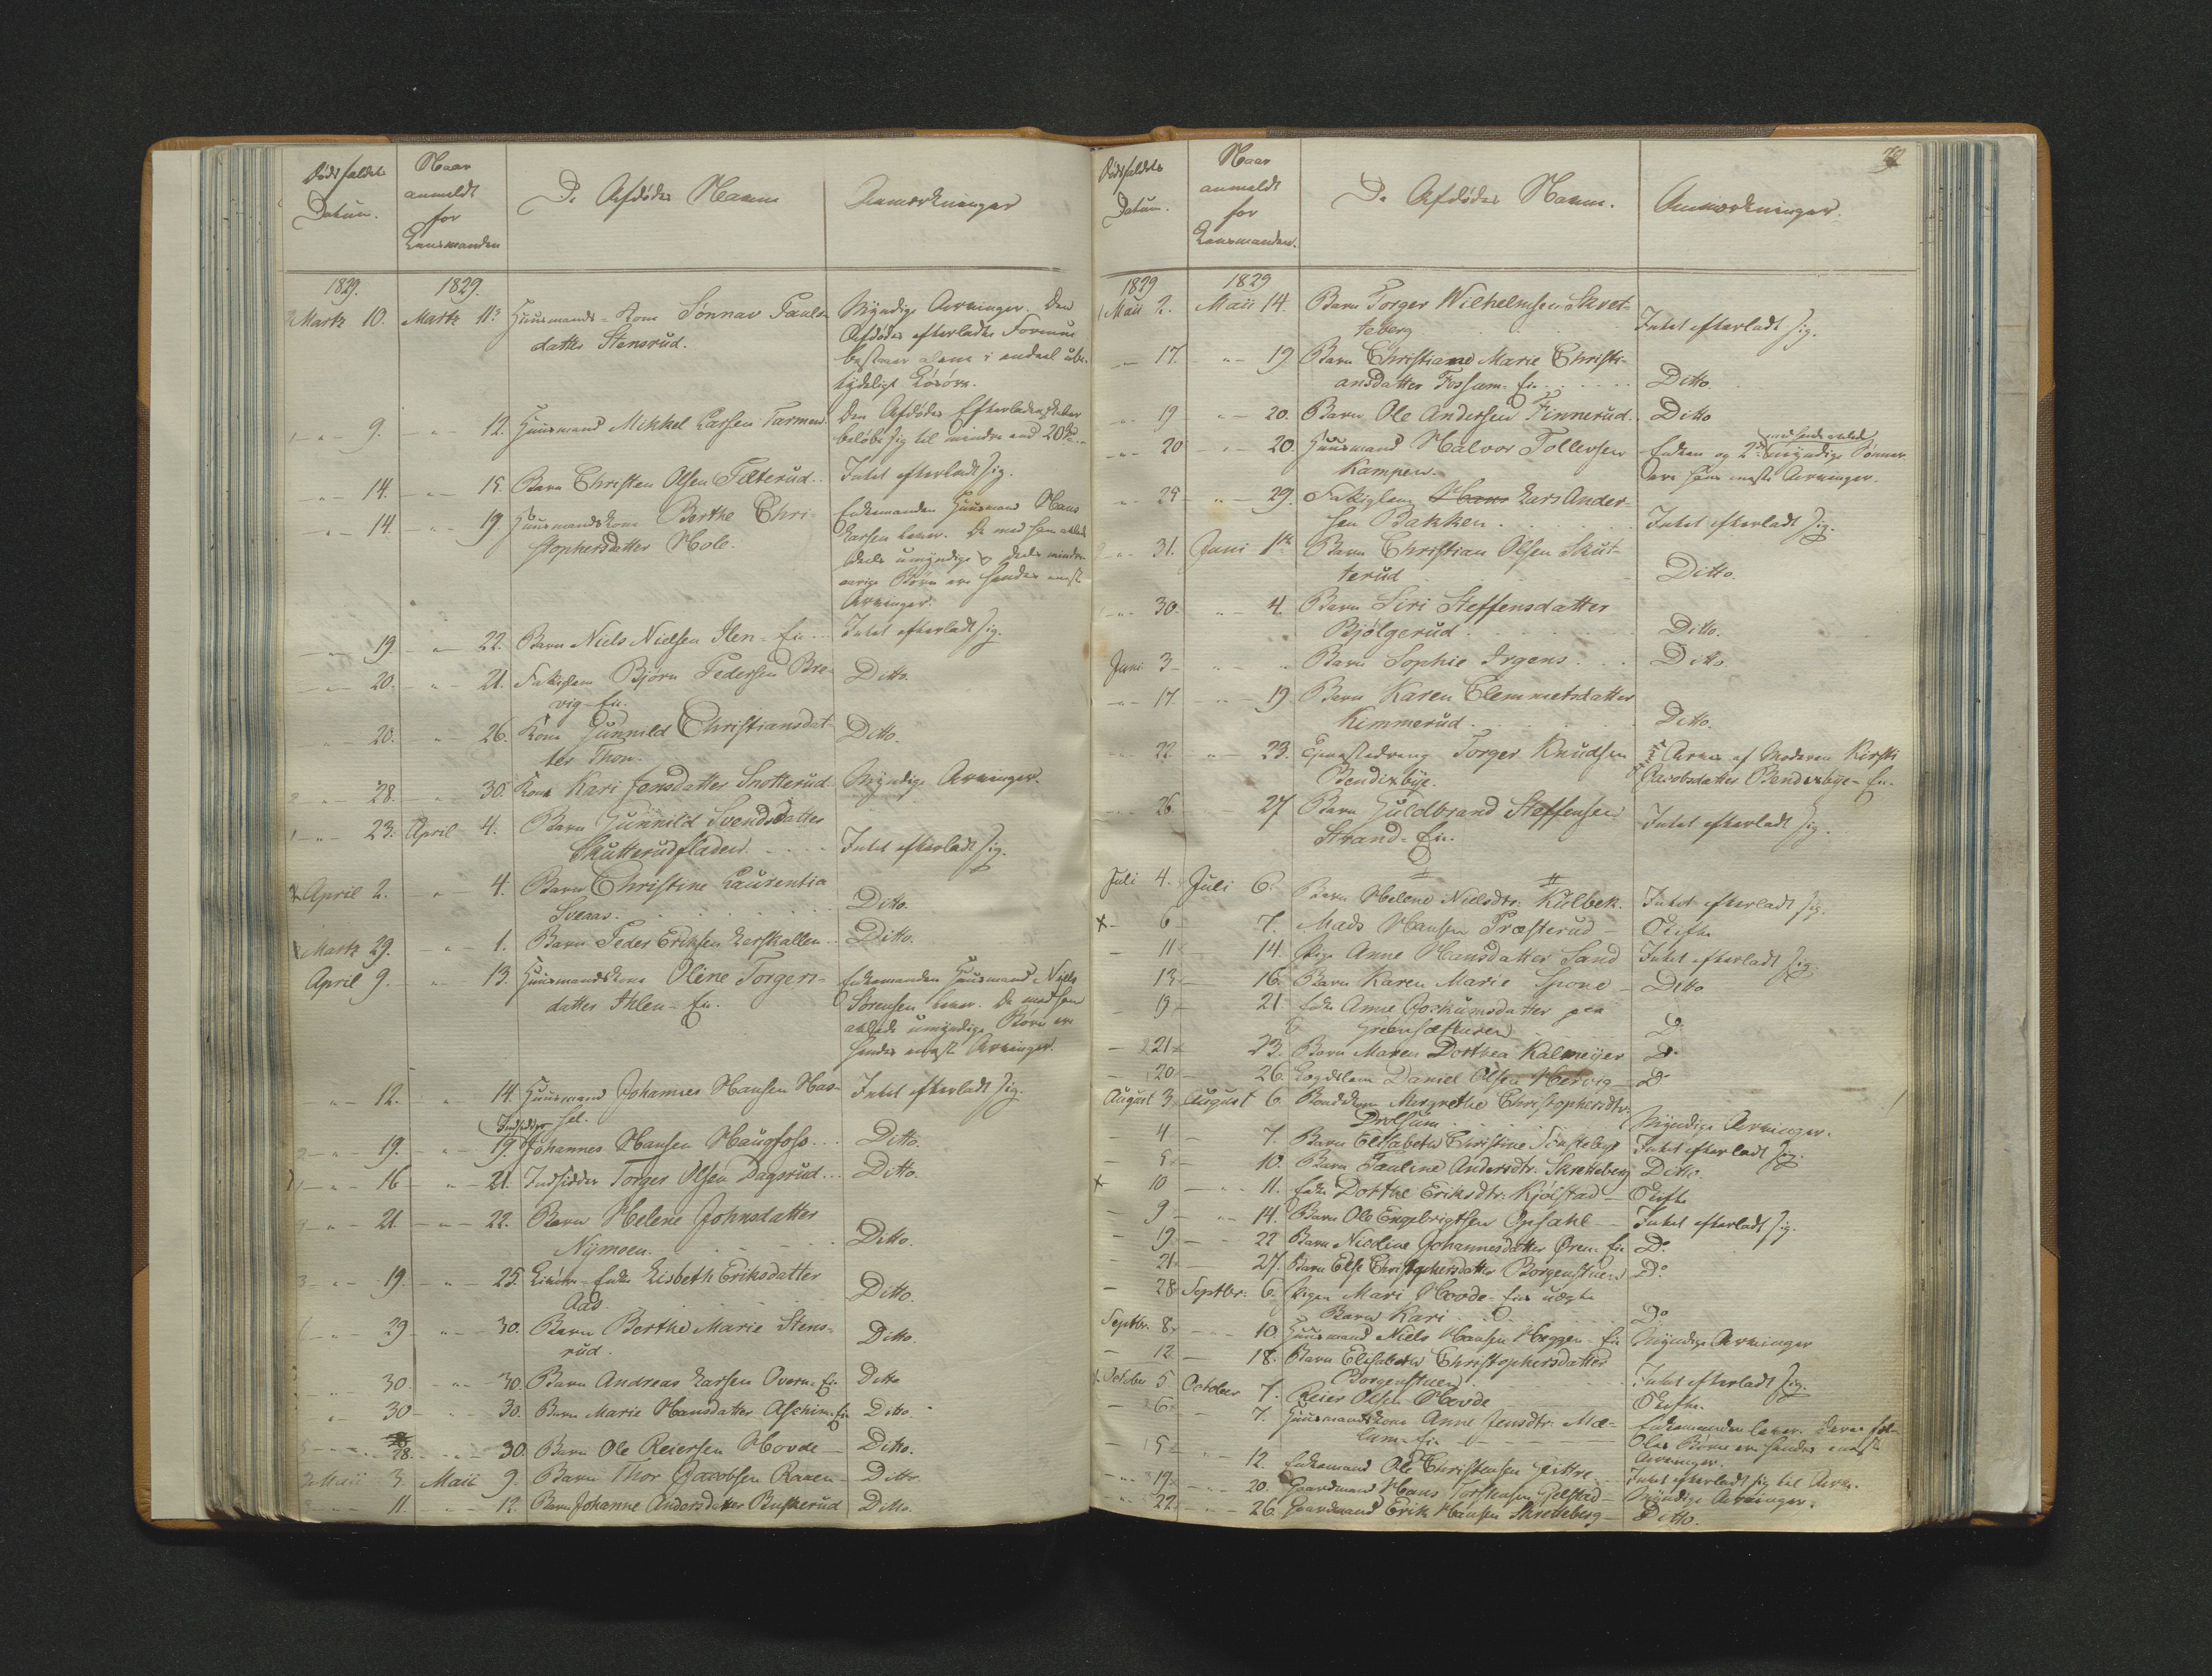 Dødsfaldets
Datum.
Naar
anmeldt
for
Lensmanden
De Afdødes Navne
Anmærkninger
1829. 1829.
Martz 10. Martz 11te Huusmands-Kone Sønnav Pauls-
datter Stensrud.
Myndige Arvinger. Den
Afdødes efterladte Formue
bestaaer alene i endeel ube-
tydeligt Løsøre.
9. 12. Huusmand Mikkel Larsen
Den Afdødes Efterladenskaber
beløbe sig til mindre end 20
14. 15. Barn Christen Olsen Tæterud. Intet efterladt sig.
14. 19. Huusmandskone Berthe Chri-
stophersdatter Hole.
Enkemanden Huusmand Hans
Larsen lever. De med ham avlede
deels umyndige deels minder-
aarige Børn ere hendes
Arvinger.
19. 22. Barn Niels Nielsen Ilen-Ei Intet efterladt sig.
20. 21. Fattiglem Bjørn Pedersen Bre-
vig-Ei. Ditto.
20. 26. Kone Gunnild Christiansdat-
ter Thon. Ditto.
28. 30. Kone Kari Jensdatter Snotterud Myndige Arvinger.
23. April 4. Barn Gunnild Svendsdatter
Skutterudfladen. Intet efterladt sig.
April 2. 4. Barn Christine Laurentia
Sveaas. Ditto.
Martz 29. 1. Barn Peder Eriksen Lerskallen Ditto.
April 9. 13. Huusmandskone Oline Torgers-
datter Ihlen-Ei.
Enkemanden Huusmand Niels
Sørensen lever. De med ham
avlede umyndige Børn ere
hendes Arvinger.
12. 14. Huusmand Johannes Hansen Has-
sel. Intet efterladt sig.
Indsidder
19. 19. Johannes Hansen Haugfoss. Ditto.
16 21. Indsidder Torger Olsen Dagsrud. Ditto.
21. 22. Barn Helene Johnsdatter
Nymoen. Ditto.
19. 25. Enke Lisbeth Eriksdatter
Aas. Ditto.
29 30. Barn Berthe Marie Stens-
rud. Ditto.
30. 30. Barn Andreas Larsen Overn-Ei Ditto
30 30. Barn Marie Hansdatter Aschim-Ei Ditto.
28. 30. Barn Ole Reiersen Hovde Ditto.
Maii 3. Maii 9. Barn Thor Jacobsen Raaen Ditto.
11. 12. Barn Johanne Andersdatter Buskerud Ditto.
Dødsfaldets
Datum.
Naar
anmeldt
for
Lensmanden.
De Afdødes Navne.
Anmærkninger.
1829 1829
Maii 2. Maii 14. Barn Torger Wilhelmsen Skret-
teberg Intet efterladt sig.
17. 19. Barn Christiane Marie Christi-
ansdatter Fossum-Ei Ditto.
19 20. Barn Ole Andersen Finnerud. Ditto
20 20. Huusmand Halvor Tollevsen
Kampen.
med hende avlede
Enken og 2de myndige Sønner
ere hans Arvinger.
29 29. Fattiglem Hans Lars Ander-
sen Bakken. Intet efterladt sig.
31. Juni 1ste Barn Christian Olsen Skut-
terud Ditto.
30. 4. Barn Siri Steffensdatter
Bjølgerud. Ditto.
Juni 3 Barn Sophie Irgens. Ditto
17. 19 Barn Karen Clemmetsdatter
Kimmerud. Ditto.
22. 23. Tjenestedreng Torger Knudsen
Bendixbye.
Arves af Moderen Kirsti
Jacobsdatter Bendixbye-Ei.
26. 27 Barn Guldbrand Steffensen
Strand-Ei. Intet efterladt sig.
Juli 4. Juli 6. Barn Helene Nielsdtr: Kulbek. Intet efterladt sig.
6 7. Mads Hansen Præsterud Skifte
11 14. Pige Anne Hansdatter Sand Intet efterladt sig.
13 16. Barn Karen Marie Spone Ditto
19 21 Enke Anne Jockumsdatter paa
D.
21 23. Barn Maren Dorthea Kalmeijer D.
20 26. Lægdslem Daniel Olsen Hervig D
August 3 August 6. Bondekone Margrethe Christophersdtr.
Drolsum. Myndige Arvinger.
4 7. Barn Elisabeth Christine Intet efterladt sig.
10. Barn Pauline Andersdtr: Skretteberg Ditto.
10 11. Enke Dorthe Eriksdtr: Kjølstad Skifte
9 14. Barn Ole Engebrigtsen Opsahl Intet efterladt sig.
19. 22 Barn Nicoline Johannesdatter Øren-Ei Do.
21 27. Barn Else Christophersdatter Borgenstuen Do.
28 Septbr: 6. Pigen Mari Hovde-Eies uægte
Barn Kari Do
Septbr. 8. 10. Huusmand Niels Hansen Heggen-Ei Myndige Arvinger
12 18. Barn Elisabeth Christophersdatter
Borgenstuen Intet efterladt sig.
October 5 October 7. Reier Olsen Hovde Skifte.
6 7. Huusmandskone Anne Jensdtr: Mæ-
lum-Ei
Enkemanden lever. Deres
Børn ere hendes
Arvinger.
5 12. Enkemand Ole Christensen Intet efterladt sig til Arv.
17. 20. Gaardmand Hans Torstensen Gjelstad Myndige Arvinger.
22. 26. Gaardmand Erik Hansen Skretteberg Ditto.